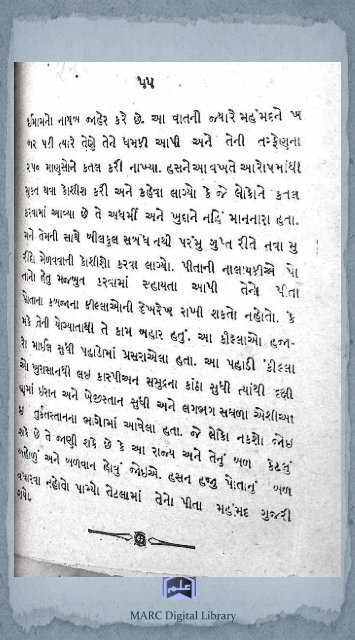 ૫૫
ઈમામનો નાયબ જાહેર કરે છે. આ વાતની જ્યારે મહંમદને ખ
બર પડી ત્યારે તેણે તેને ધમકી આપી અને તેની તરફેણના
૨૫૦ માણસોને કતલ કરી નાખ્યા. હસને આ વખતે આરોપમાંથી
મુકત થવા કોશીશ કરી અને કહેવા લાગ્યો કે જે લોકોને કતલ
કરવામાં આવ્યા છે તે અધર્મી અને ખુદાને નહિં માનનારા હતા.
મને તેમની સાથે બીલકુલ સબંધ નથી પરંતુ ગુપ્ત રીતે નવા મુ
રીદો મેળવવાની કોશીશો કરવા લાગ્યો. પીતાની નાલાયકીએ પો
તાનો હેતુ મજબુત કરવામાં સહાયતા આપી તેનો પીતા
પોતાના કબજાના કીલ્લાઓની દેખરેખ રાખી શકતો નહોતો. કે
મકે તેની યોગ્યતાથી તે કામ બહાર હતું. આ કીલ્લાઓ હજા-
રો માઈલ સુધી પહાડોમાં પ્રસરાએલા હતા. આ પહાડી કીલ્લા
ઓ ખુરાસાનથી લઇ કાસ્પીઅન સમુદ્રના કાંઠા સુધી ત્યાંથી દક્ષી
ણમાં ઇરાન અને ખોજીસ્તાન સુધી અને લગભગ સઘળા એશીઆ
ઇ તુર્કસ્તાનના ભાગોમાં આવેલા હતા. જે લોકો નકશો જોઇ
શકે છે તે જાણી શકે છે કે આ રાજ્ય અને તેનું બળ કેટલું
બહોળું અને બળવાન હોવું જોઇએ. હસન હજુ પોતાનું બળ
વધારવા નહોતો પામ્યો તેટલામાં તેનો પીતા મહંમદ ગુજરી
ગયો.
علم
MARC Digital Library